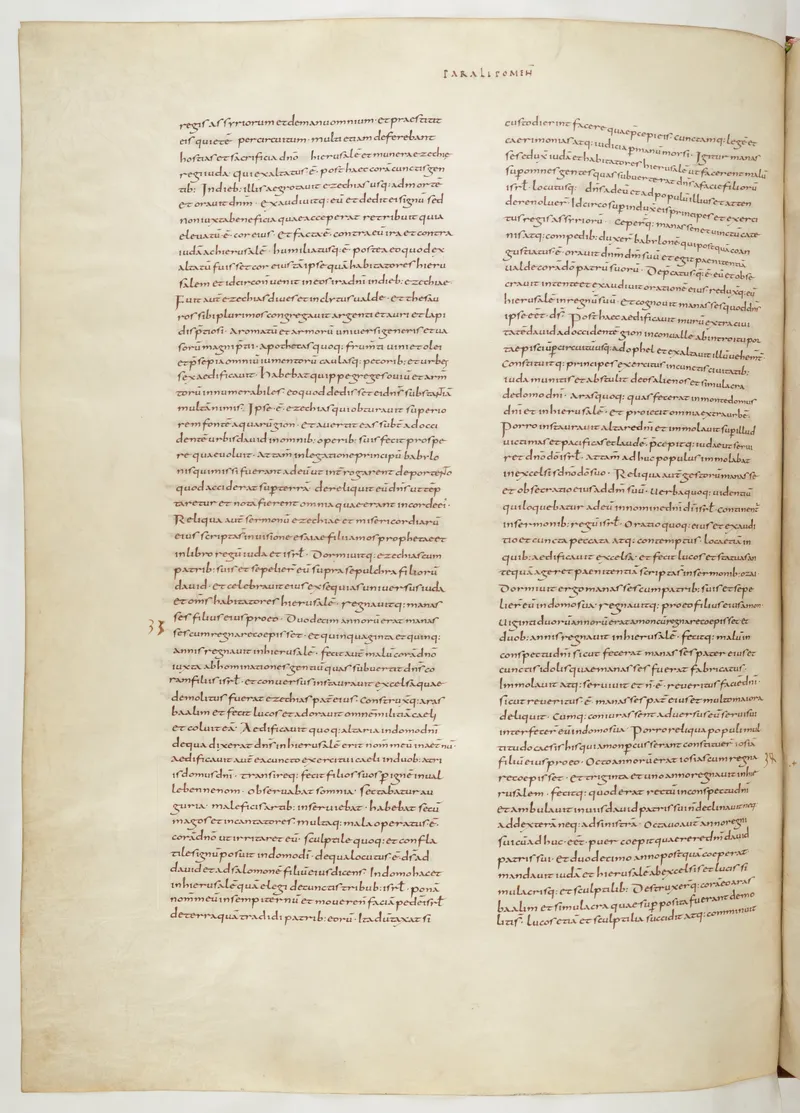 PARALIPOMIN̄
regis assyriorum et de manu omnium · et praestitit
eis quietē per circuitum · multi etiam deferebant
hostias et sacrificia dn̄o hierusalē et munera ezechie
regi iuda · qui exaltatus ē · post haec corā cunctis gen
tib: In dieb: illis aegrotauit ezechias usq: ad mortē
et orauit dn̄m · exaudiuitq: eū et dedit ei signū sed
non iuxta beneficia quae acceperat retribuit quia
eleuatū ē cor eius et facta ē contra eū ira et contra
iudā ac hierusalē · humiliatusq: ē postea eo quod ex
altatū fuisset cor eius tā ipse quā habitatores hieru
salem et idcirco n̄ uenit in eos ira dn̄i in dieb: ezechiae
Fuit autē ezechias diues et inclytus ualde · et thesau
ros sibi plurimos congregauit argenti et auri et lapi
dis p̄tiosi · aromatū et armorū uniuersi generis et ua
sorū magni p̄tii · apothecas quoq: frum̄ti uini et olei
et p̄sepia omniū iumentorū caulasq: pecorib: et urbes
sex aedificauit · habebat quippe greges ouiū et arm̄
torū innumerabiles · eo quod dedisset ei dn̄s substantiā
multā nimis · Ipse ē ezechias qui obturauit superio
rem fontē aquarū gion · et auertit eas subt̄ ad occi
dentē urbis dauid in omnib: operib: suis fecit prospe
re quae uoluit · Attam̄ in legatione principū babylo
nis qui missi fuerant ad eū ut int̄rogarent de portento
quod acciderat sup terrā · dereliquit eū dn̄s ut tēp
taretur et nota fierent omnia quae erant in corde ei:
Reliqua autē sermonū ezechiae et misericordiarū
eius scripta s̄ in uisione esaiae filii amos prophetae et
in libro regū iuda et isrl̄ · Dormiuitq: ezechias cum
patrib: suis et sepelier̄ eū supra sepulchra filiorū
dauid · et celebrauit eius exsequias uniuersus iuda
et om̄s habitatores hierusalē · regnauitq: manas
ses filius eius pro eo · Duodecim annorū erat manas
33
ses cum regnare coepisset · et quinquaginta et quinq:
annis regnauit in hierusalē · fecit autē malū corā dn̄o
iuxta abhominationes gentiū quas subuertit dn̄s co
ram filiis isrl̄ · et conuersus instaurauit excelsa quae
demolitus fuerat ezechias pat̄ eius · Construxitq: aras
baalim et fecit lucos et adorauit omnē militiā caeli
et coluit eā · Aedificauit quoq: altaria in domo dn̄i
de qua dixerat dn̄s in hierusalē erit nom̄ meū in aet̄nū
aedificauit autē ea cuncto exercitui caeli in duob: atri
is domus dn̄i · transireq: fecit filios suos p ignē in ual
le bennenom · obseruabat somnia · sectabatur au
guria · maleficis artib: inseruiebat · habebat secū
magos et incantatores · multaq: mala operatus ē
corā dn̄o ut irritaret eū · sculptile quoq: et confla
tile signū posuit in domo dī · de qua locutus ē dn̄s ad
dauid et ad salomonē filiū eius dicens · In domo hac et
in hierusalē quā elegi de cunctis tribub: isrl̄ · ponā
nom̄ meū in sempiternū et moueri n̄ faciā pedē isrl̄
de terra quā tradidi patrib: eorū · Ita dūtaxat si
custodierint facere quae p̄cepi eis · cunctamq: legē et
caerimonias atq: iudicia p manū mosi · Igitur manas
ses seduxit iudā et habitatores hierusalē ut facerent malū
sup om̄s gentes quas subuerterat dn̄s a facie filiorū
isrl̄ · locutusq: dn̄s ad eū et ad populū illius et atten
dere noluer̄ · Idcirco sup induxit eis principes et exerci
tus regis assyriorū · Ceper̄q: manassen et uinctū cate
nis atq: compedib: duxer̄ babylonē qui postquā coan
gustatus ē · orauit dn̄m dm̄ suū et egit paenitentiā
ualde corā do patrū suorū · Depcatusq: ē eū et obse
crauit intente et exaudiuit orationē eius reduxitq: eū
hierusalē in regnū suū · et cognouit manasses quod dn̄s
ipse eēt ds̄ · Post haec aedificauit murū extra ciui
tatē dauid ad occidentē gion in conualle ab introitu por
tae pisciū p circuitū usq: ad ophel et exaltauit illū uehem̄t
Constituitq: principes exercitus in cunctis ciuitatib:
iuda munitis et abstulit deos alienos et simulacra
de domo dn̄i · aras quoq: quas fecerat in monte domus
dn̄i et in hierusalē · et proiecit omnia extra urbē
Porro instaurauit altare dn̄i et immolauit sup illud
uictimas et pacificas et laudē · p̄cepitq: iudae ut serui
ret dn̄o dō isrl̄ · attam̄ adhuc populus immolabat
in excelsis dn̄o dō suo · Reliqua autē gestorū manasse
et obsecratio eius ad dm̄ suū · uerba quoq: uidentiū
qui loquebatur ad eū in nomine dn̄i dī isrl̄ · continent̄
in sermonib: regū isrl̄ · Oratio quoq: eius et exaudi
tio et cuncta peccata atq: contemptus · loca etiā in
quib: aedificauit excelsa · et fecit lucos et statuas an
tequā ageret paenitentiā scripta s̄ in sermonib: ozai
Dormiuit ergo manasses cum patrib: suis et sepe
lier̄ eū in domo sua · regnauitq: pro eo filius eius amon
Uiginti duorū annorū erat amon cū regnare coepisset et
duob: annis regnauit in hierusalē · fecitq: malū in
conspectu dn̄i sicut fecerat manasses pater eius et
cunctis idolis quae manasses fuerat fabricatus
Immolauit atq: seruiuit et n̄ ē reueritus faciē dn̄i ·
sicut reueritus ē manasses pat̄ eius et multo maiora
deliquit · Cumq: coniurassent aduersus eū serui sui
interfecer̄ eū in domo sua · Porro reliqua populi mul
titudo caesis his qui amon pcusserant constituer̄ iosiā
filiū eius pro eo · Octo annorū erat iosias cum regna
34
re coepisset · et triginta et uno anno regnauit in hie
rusalem · fecitq: quod erat rectū in conspectu dn̄i
et ambulauit in uiis dauid patris sui n̄ declinauit neq:
ad dexterā neq: ad sinistrā · Octauo autē anno regni
sui cū adhuc eēt puer coepit quaerere dm̄ dauid
patris sui · et duodecimo anno postquā coeperat
mandauit iudā et hierusalē ab excelsis et lucis si
mulacrisq: et sculptilib: Destruxer̄q: corā eo aras
baalim et simulacra quae sup posita fuerant demo
liti s̄ · lucos etiā et sculptilia succidit atq: comminuit